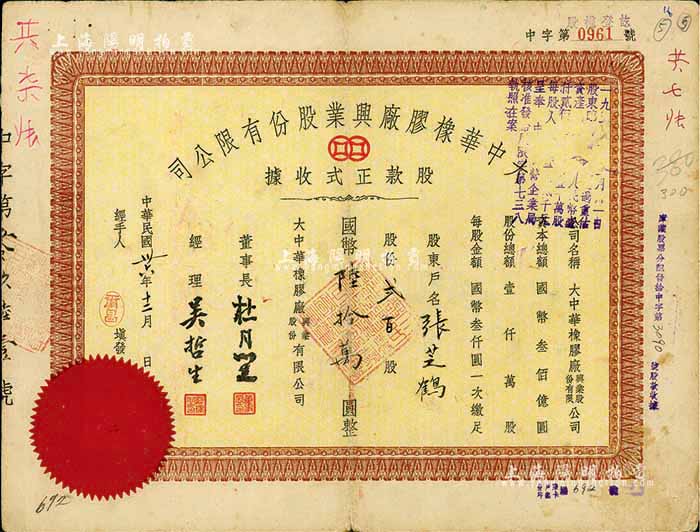 中字第0961號
大中華橡膠廠興業股份有限公司
股款正式收據
公司名稱 大中華橡膠廠興業股份有限公司
資本總額 國幣叁佰億圓
股份總額 壹仟萬股
每股金額 國幣叁仟圓一次繳足
股東戶名 張芝鶴
股份 弍百 股
國幣 陸拾萬 圓整
大中華橡膠廠興業股份有限公司
董事長 杜月笙
經理 吳哲生
中華民國 卅六年十二月 日
經手人 填發
共柒张
共七张
300
3090
號股款收據
692
692
上海陽明拍賣